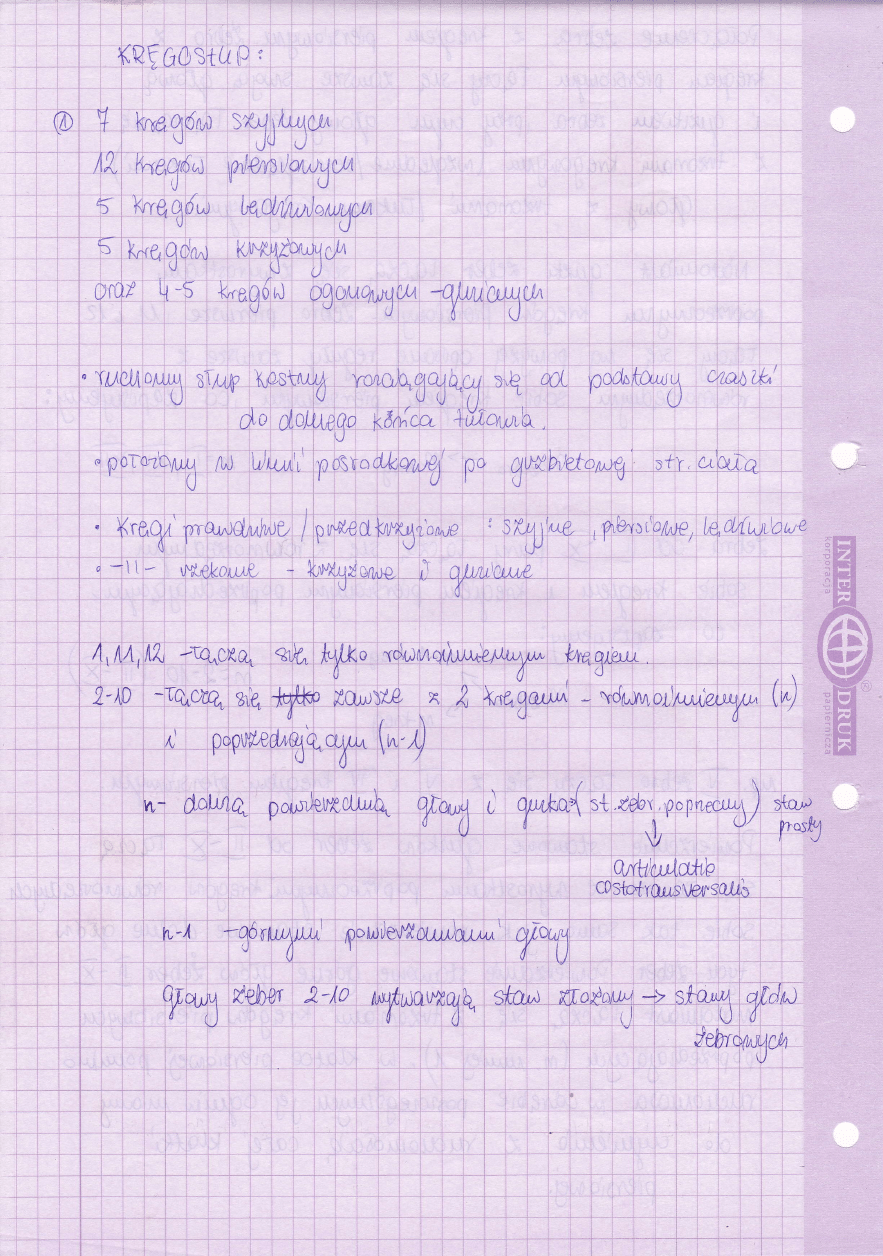 KRĘGOSŁUP:
① 7 kręgów szyjnych
12 kręgów piersiowych
5 kręgów lędźwiowych
5 kręgów krzyżowych
oraz 4-5 kręgów ogonowych - guzicznych
• ruchomy słup kostny rozciągający się od podstawy czaszki
do dolnego końca tułowia.
• położony w linii pośrodkowej po grzbietowej str. ciała
• Kręgi prawdziwe / przedkrzyżowe : szyjne, piersiowe, lędźwiowe
• -||- rzekome - krzyżowe i guziczne
1, 11, 12 - łączą się tylko równoimiennym kręgiem.
2-10 - łączą się tylko zawsze z 2 kręgami - równoimiennym (n)
i poprzedzającym (n-1)
n - dolną powierzchnią głowy i guzka (st. żebr. poprzeczny) staw
prosty
↓
articulatio
costotransversalis
n-1 - górnymi powierzchniami głowy
Głowy żeber 2-10 wytwarzają staw złożony → stawy głów
żebrowych
INTER DRUK
korporacja
papiernicza
®